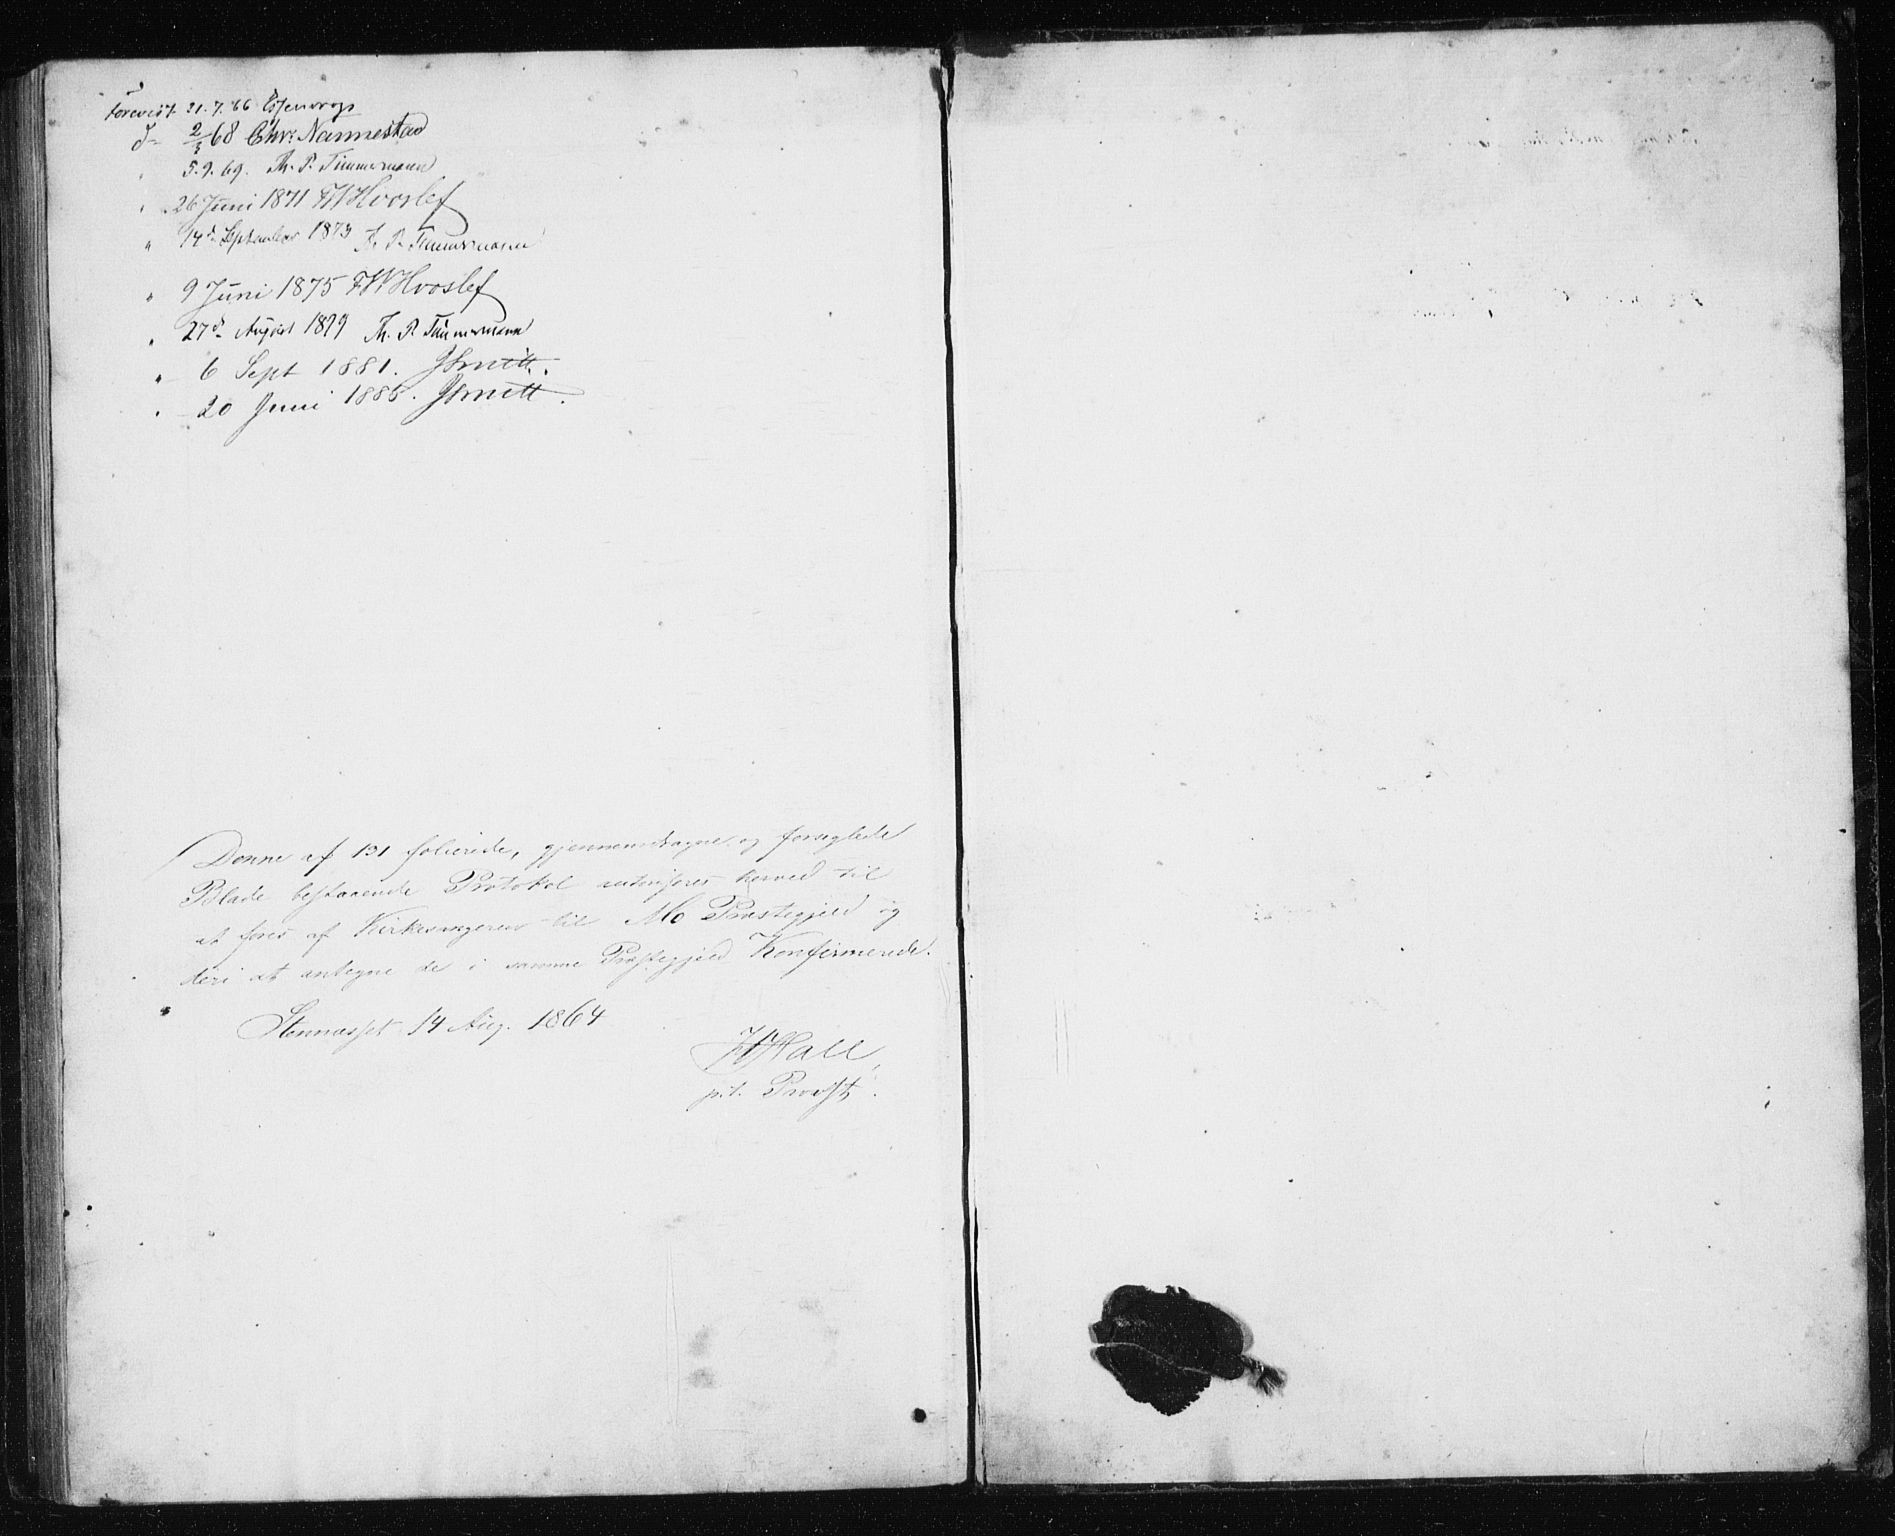 Forevist 21.7.66
d— 2/5 68 Chr. Nannestad
" 5.9.69. Th. P. Timmermann
" 26 Juni 1871 FWHvoslef
" 14de September 1873 Th. P. Timmermann
" 9 Juni 1875 FWHvoslef
" 27de August 1879 Th. P. Timmermann
" 6 Sept 1881. JSmitt.
" 20 Juni 1885. JSmitt.
Denne af 131 folierede, gjennemdragne og forseglede
Blade bestaaende Protokol autoriseres herved til
at føres af Kirkesangeren til Mo Præstegjeld og
deri at antegne de i samme Præstegjeld Konfirmerede.
Stennæsset 14 Aug. 1864
Hall
p.t. Provst.